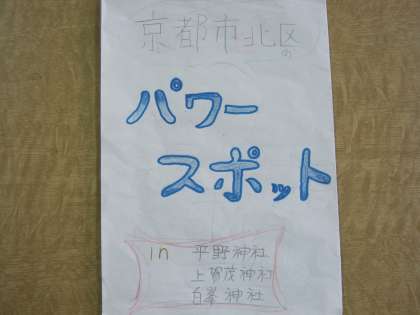 京都市北区の
パワー
スポット
in 平野神社
上賀茂神社
白峯神社